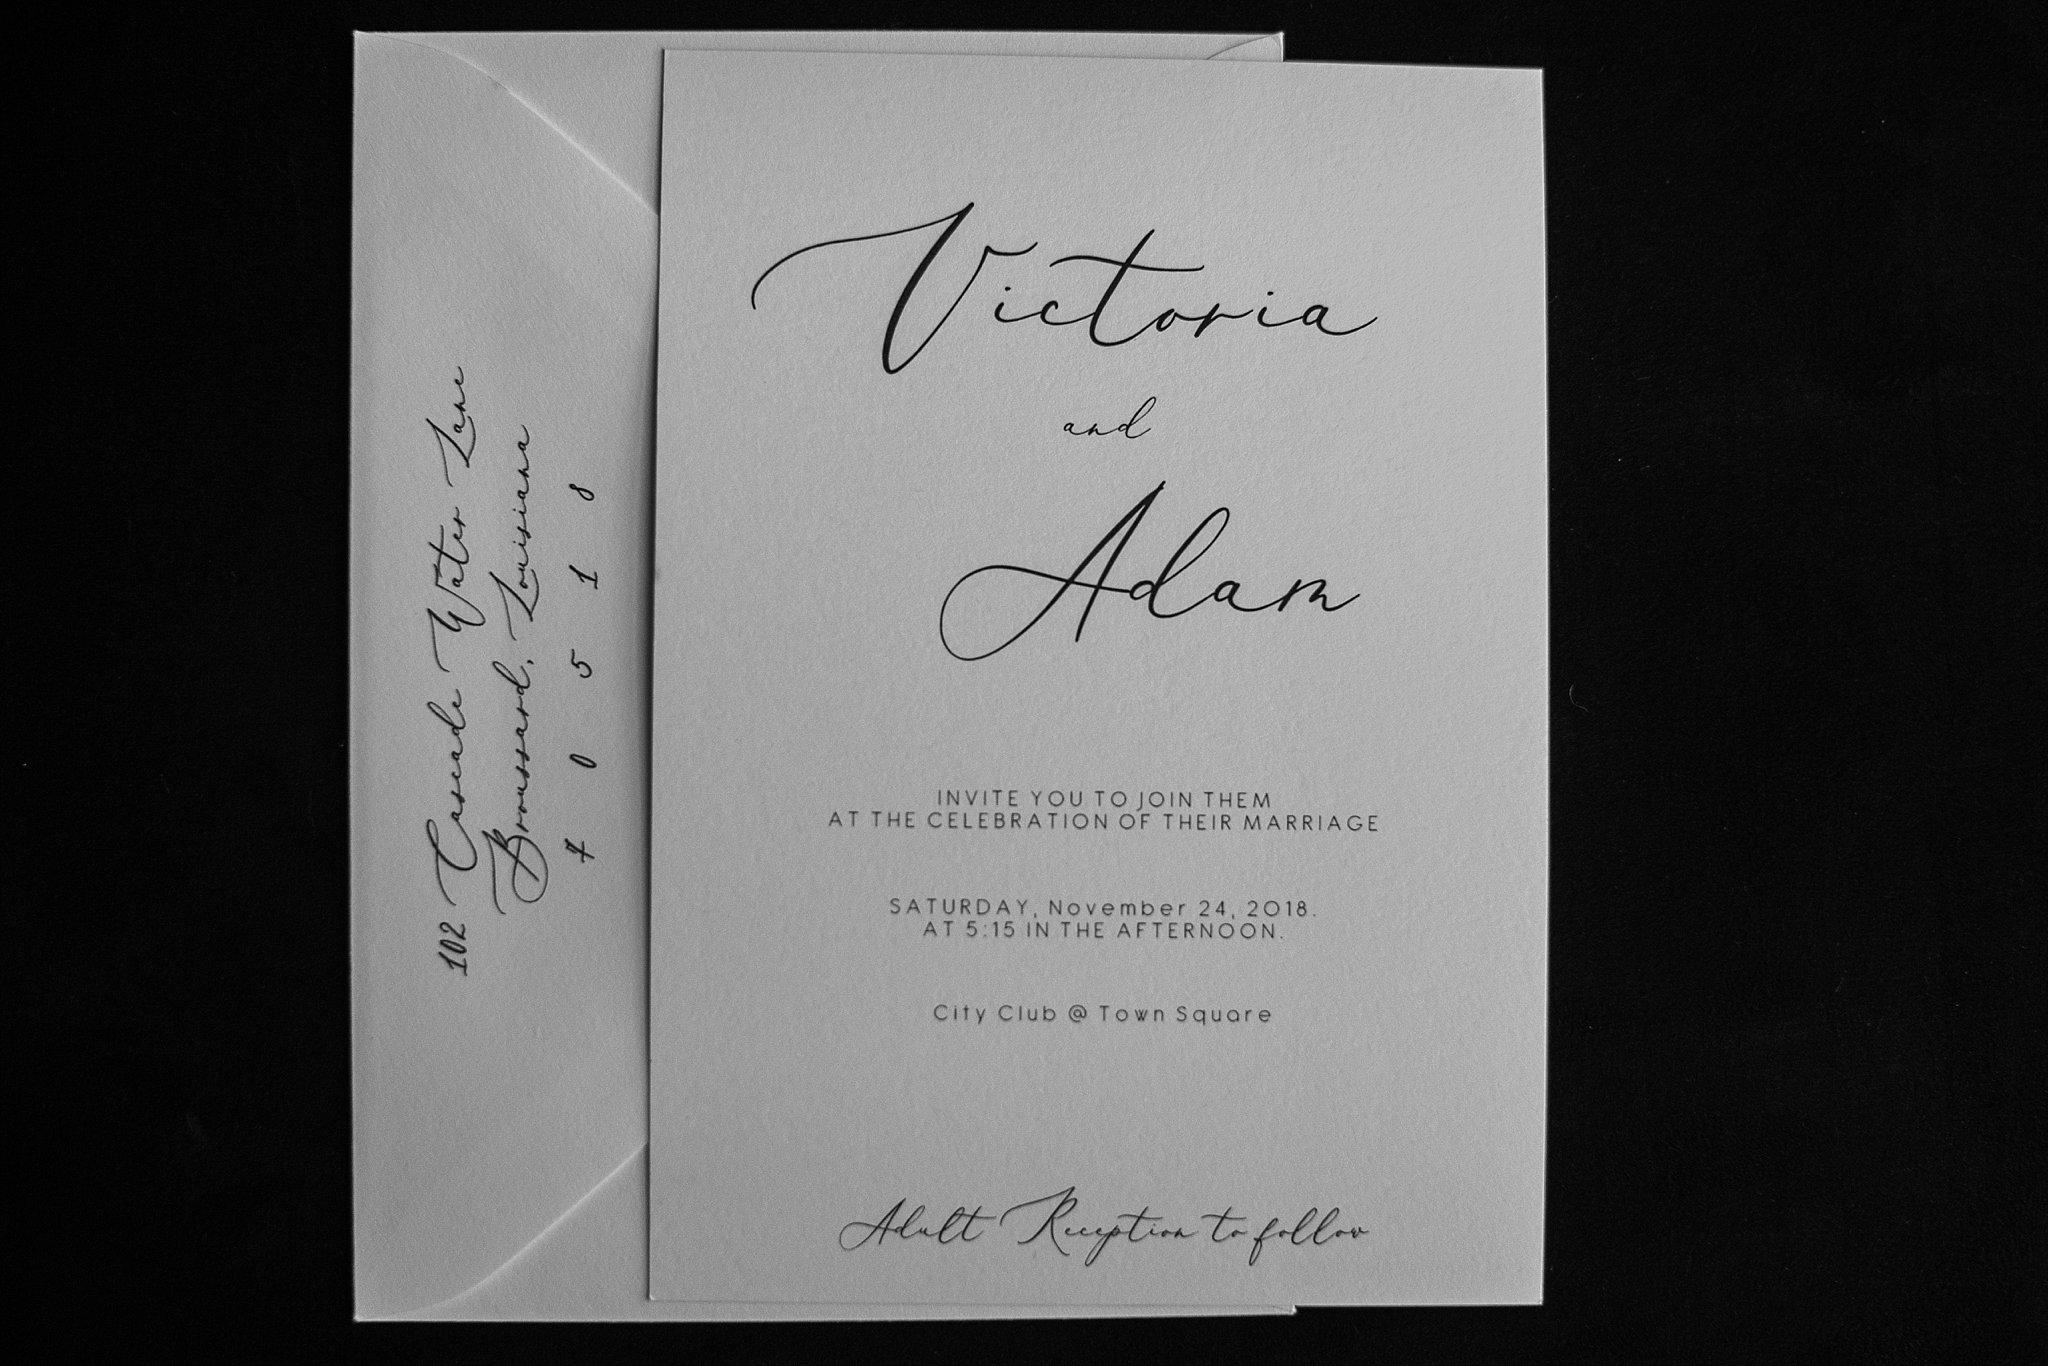 102 Cascade Water Lane
Broussard, Louisiana
7 0 5 1 8
Victoria
and
Adam
INVITE YOU TO JOIN THEM
AT THE CELEBRATION OF THEIR MARRIAGE
SATURDAY, November 24, 2018.
AT 5:15 IN THE AFTERNOON.
City Club @ Town Square
Adult Reception to follow